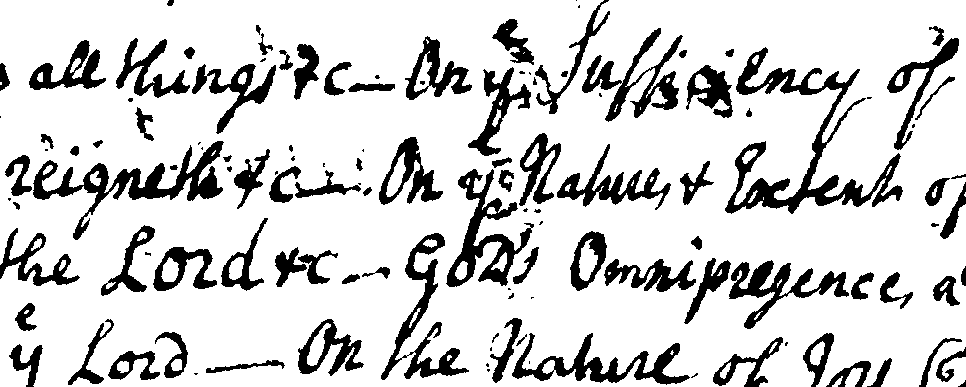 all things &c — On ye Sufficiency of
reigneth &c — On ye Nature, & Extent of
the Lord &c — GOD's Omnipresence,
ye Lord — On the Nature of Joy